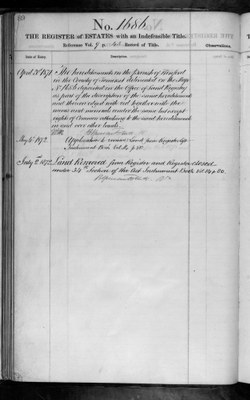 No. 1686
THE REGISTER of ESTATES with an Indefeasible Title.
Reference Vol.
Record of Title.
Date of Entry.
Description
Observations.
April 20 1871
The hereditaments in the Parish of
in the County of Somerset delineated on the Map
No 1686 deposited in the Office of Land Registry
as part of the description of the same hereditament
and thereon edged with red together with the
mines and minerals under the same but except
rights of Common attaching to the said hereditament
in and over other lands
May 1872
Application to remove Lands from Register
Instrument Book Vol.
July 2nd 1872
Land Removed from Register and Register closed
under 34th Section of the Act Instrument Book Vol 14 p